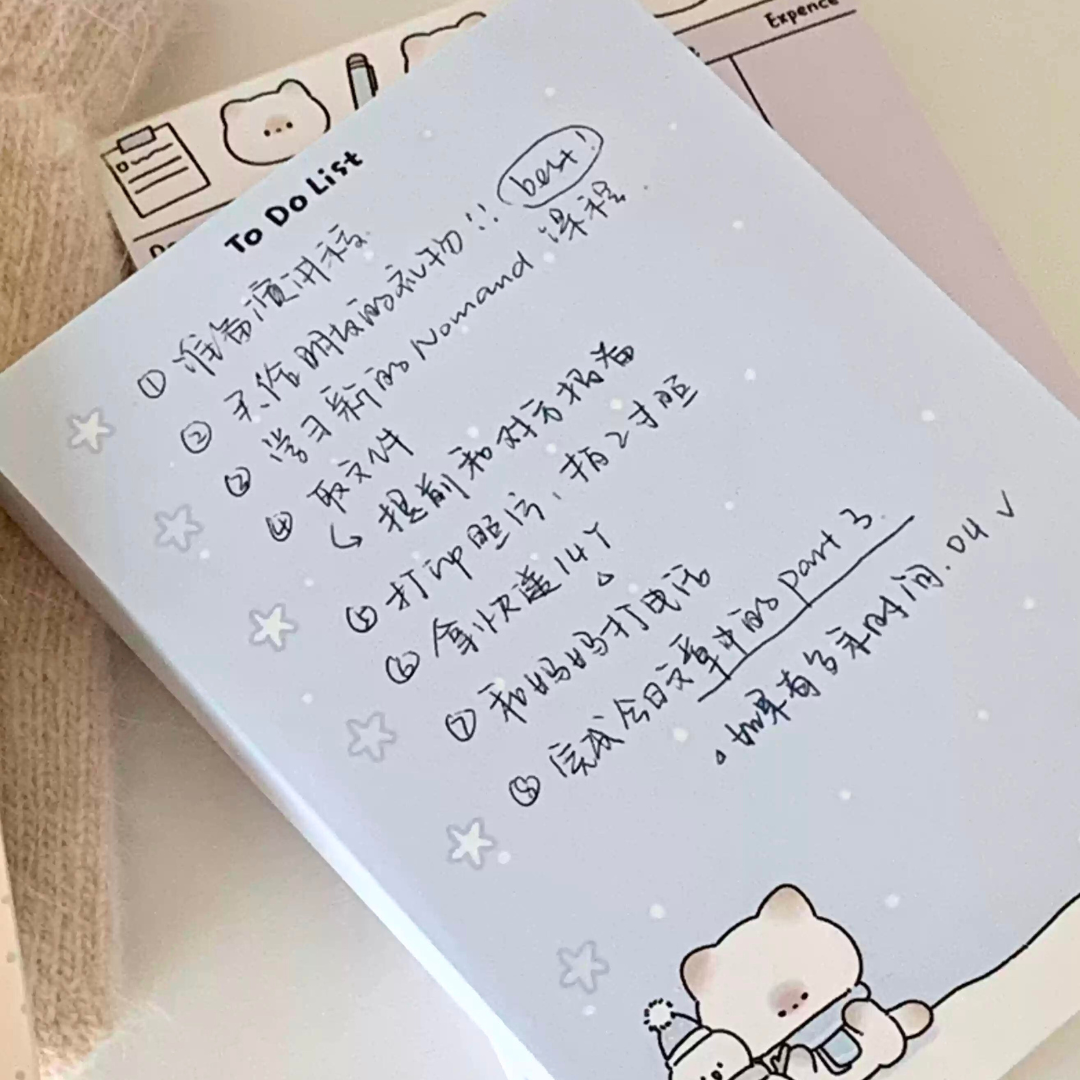 Expence
To Do List
① 准备演讲稿
② 买给朋友的礼物!! best!
③ 学习新的 Nomand 课程
④ 取文件
↳ 提前和对方招呼
⑤ 打印照片, 拍2寸照
⑥ 拿快递14Y
⑦ 和妈妈打电话
⑧ 完成今日文章中的 Part 3
如果有多余时间. D4 ✓